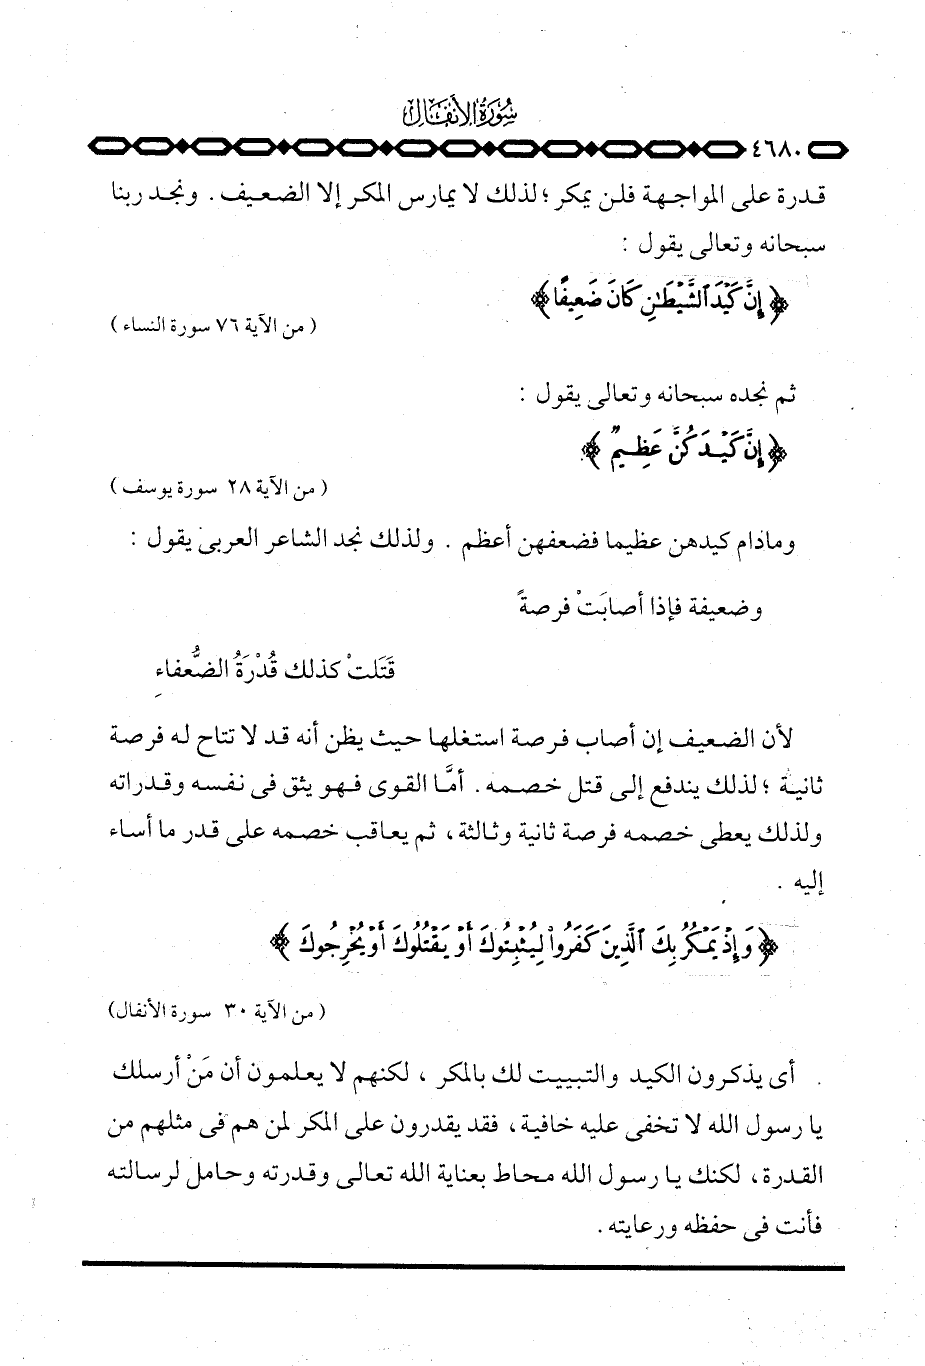 سُورَةُ الأَنفَالِ
٤٦٨٠
قدرة على المواجهة فلن يمكر ؛ لذلك لا يمارس المكر إلا الضعيف . ونجد ربنا
سبحانه وتعالى يقول :
﴿ إِنَّ كَيْدَ ٱلشَّيْطَٰنِ كَانَ ضَعِيفًا ﴾
( من الآية ٧٦ سورة النساء )
ثم نجده سبحانه وتعالى يقول :
﴿ إِنَّ كَيْدَكُنَّ عَظِيمٌ ﴾
( من الآية ٢٨ سورة يوسف )
ومادام كيدهن عظيما فضعفهن أعظم . ولذلك نجد الشاعر العربى يقول :
وضعيفة فإذا أصابَتْ فرصةً
قَتَلتْ كذلك قُدْرَةُ الضُّعفاءِ
لأن الضعيف إن أصاب فرصة استغلها حيث يظن أنه قد لا تتاح له فرصة
ثانية ؛ لذلك يندفع إلى قتل خصمه . أمَّا القوى فهو يثق فى نفسه وقدراته
ولذلك يعطى خصمه فرصة ثانية وثالثة ، ثم يعاقب خصمه على قدر ما أساء
إليه .
﴿ وَإِذْ يَمْكُرُ بِكَ ٱلَّذِينَ كَفَرُوا۟ لِيُثْبِتُوكَ أَوْ يَقْتُلُوكَ أَوْ يُخْرِجُوكَ ﴾
( من الآية ٣٠ سورة الأنفال )
أى يذكرون الكيد والتبييت لك بالمكر ، لكنهم لا يعلمون أن مَنْ أرسلك
يا رسول الله لا تخفى عليه خافية ، فقد يقدرون على المكر لمن هم فى مثلهم من
القدرة ، لكنك يا رسول الله محاط بعناية الله تعالى وقدرته وحامل لرسالته
فأنت فى حفظه ورعايته .